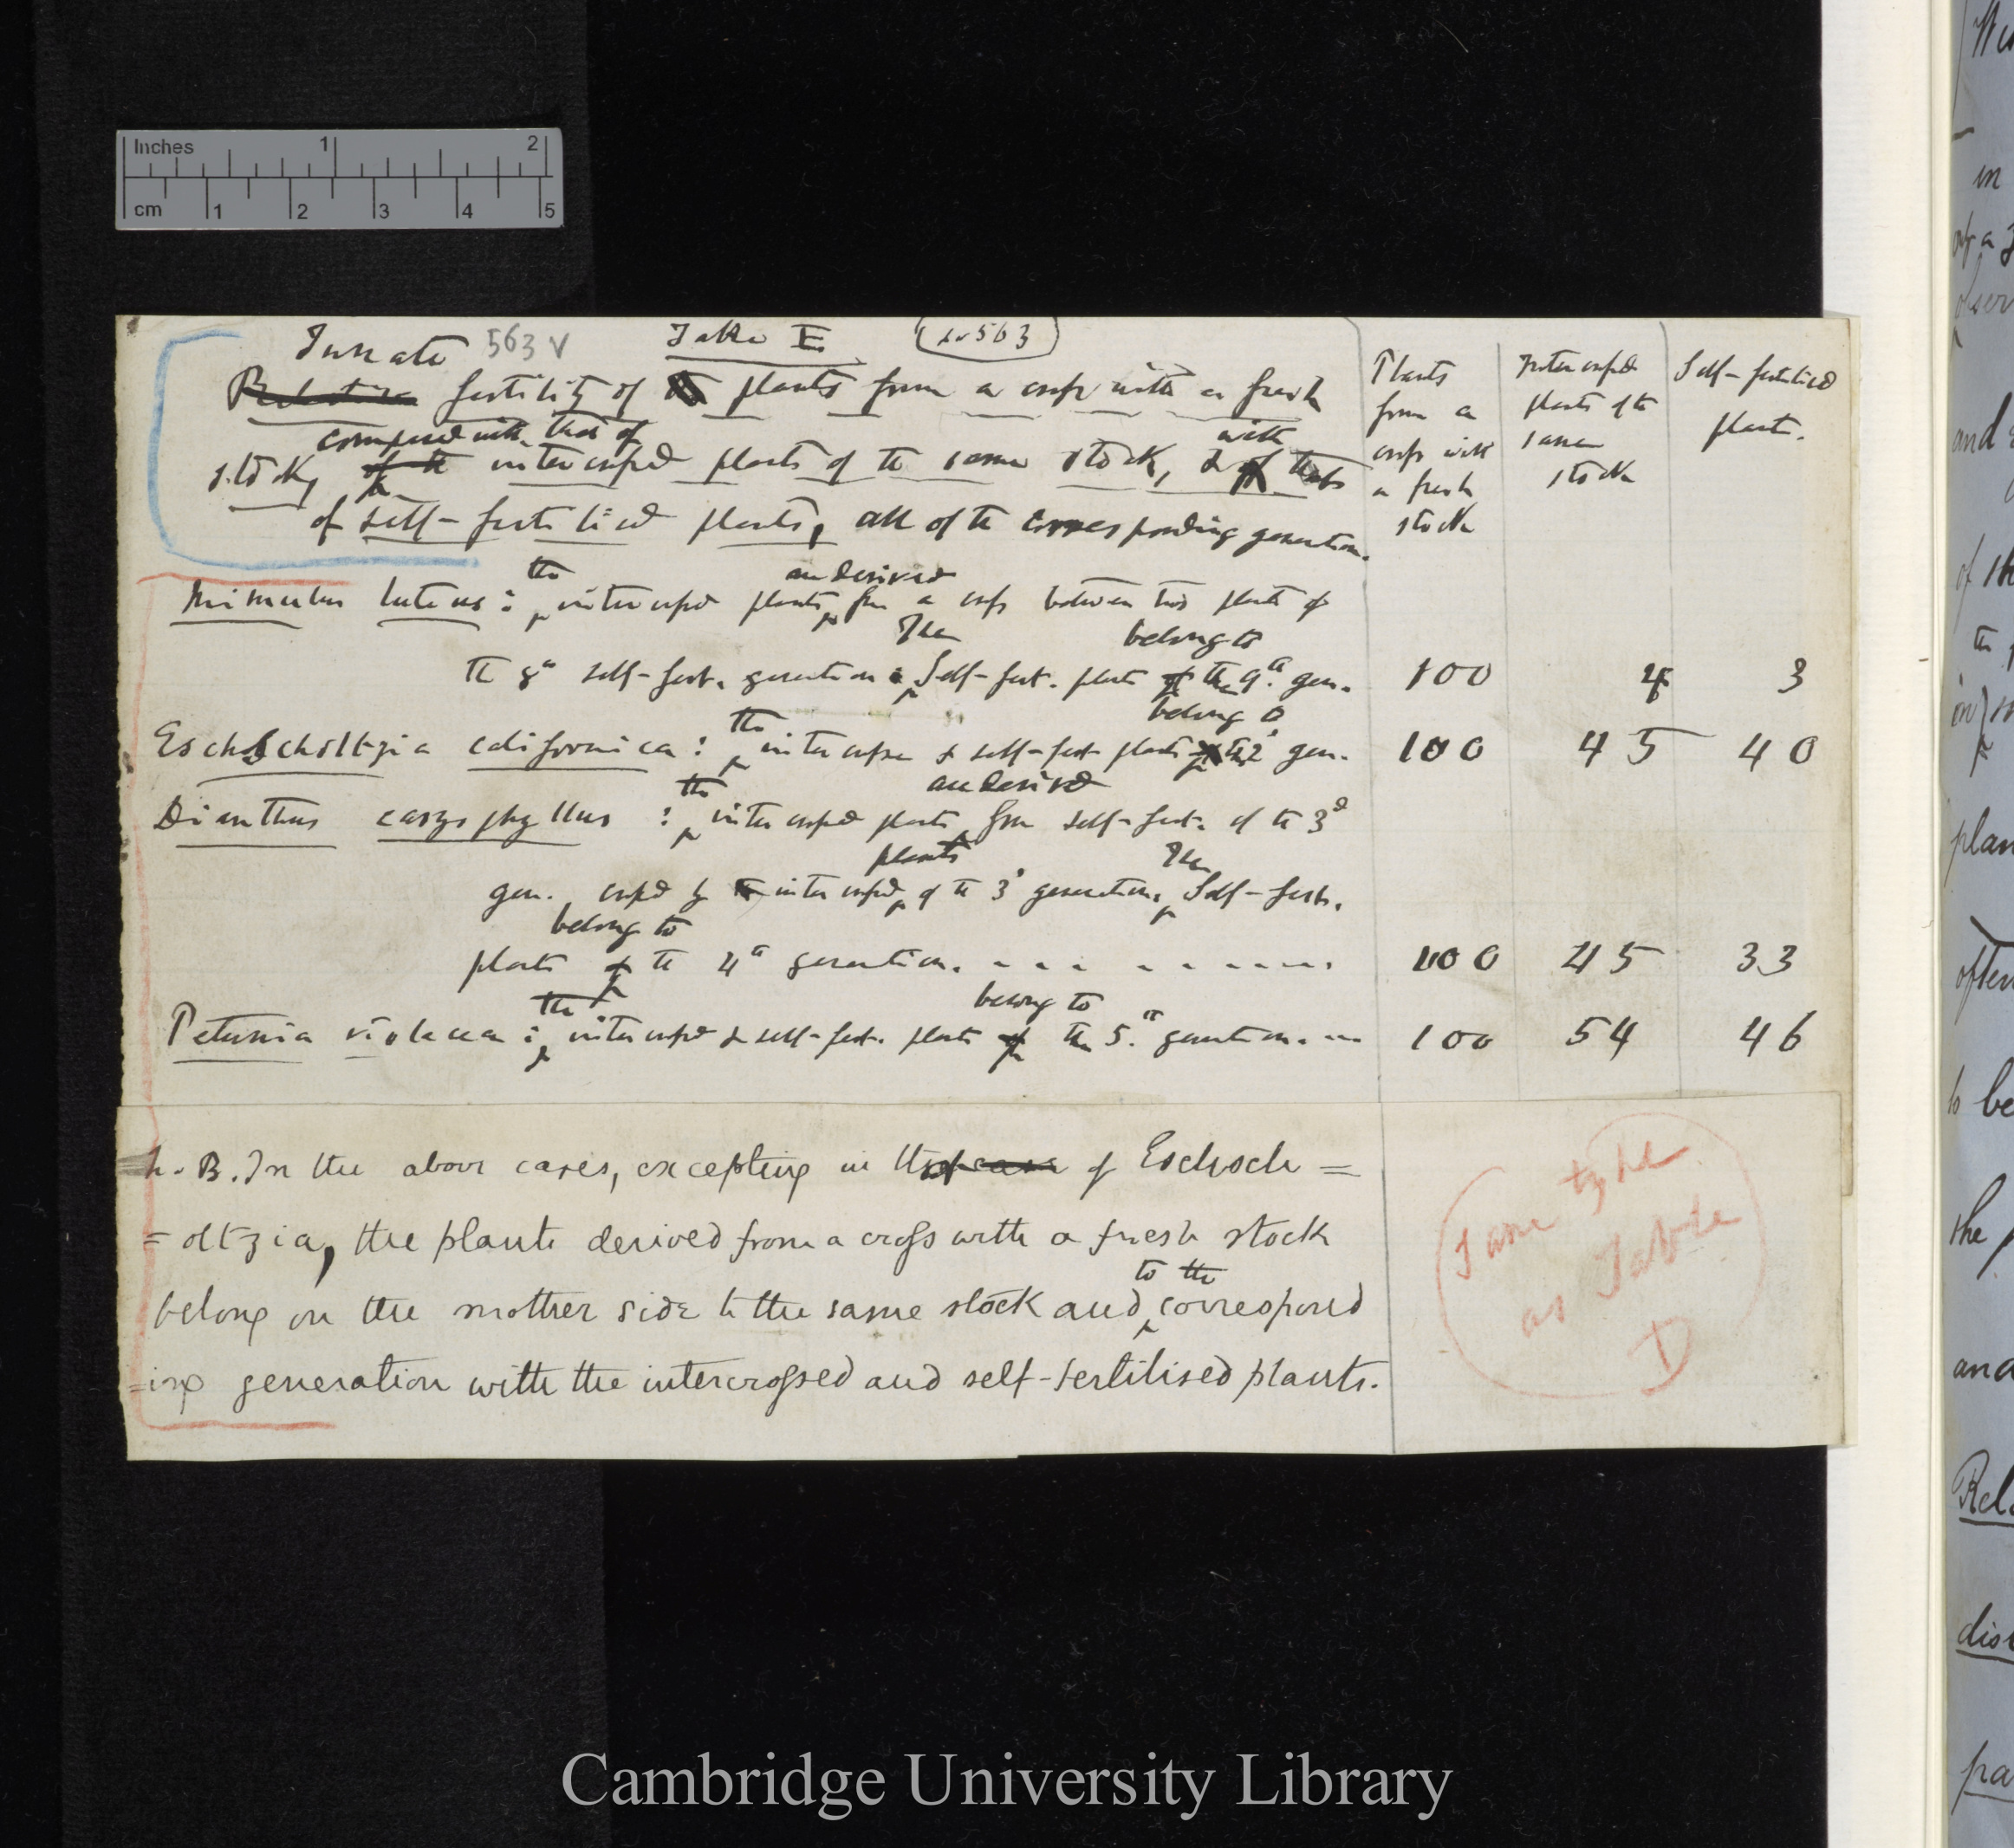 Inches 1 2
cm 1 2 3 4 5
Innate 563 v Table E (to 563)
Relative fertility of the plants from a cross with a fresh
compared with that of with
stock, of the intercrossed plants of the same stock, & of that
of self-fertilised plants, all of the corresponding generation.
Plants from a cross with a fresh stock
Intercrossed plants of the same stock
Self-fertilised plants.
the are derived
Mimulus luteus: intercrossed plants from a cross between two plants of
The belong to
the 8th self-fert. generation: Self-fert. plants of the 9th gen. 100 4 3
the belong to
Eschscholtzia californica: intercrossed & self-fert plants of the 2d gen. 100 45 40
the are derived
Dianthus caryophyllus: intercrossed plants from self-fert. of the 3d
plants The
gen. crossed by intercrossed of the 3d generation. Self-fert.
belong to
plants of the 4th generation. - - - - - - - - - 100 45 33
the belong to
Petunia violacea: intercrossed & self-fert. plants of the 5th generation. --- 100 54 46
N.B. In the above cases, excepting in that case of Eschsch=
=oltzia, the plants derived from a cross with a fresh stock
to the
belong on the mother side to the same stock and correspond
=ing generation with the intercrossed and self-fertilised plants.
Same type
as Table
D
Cambridge University Library